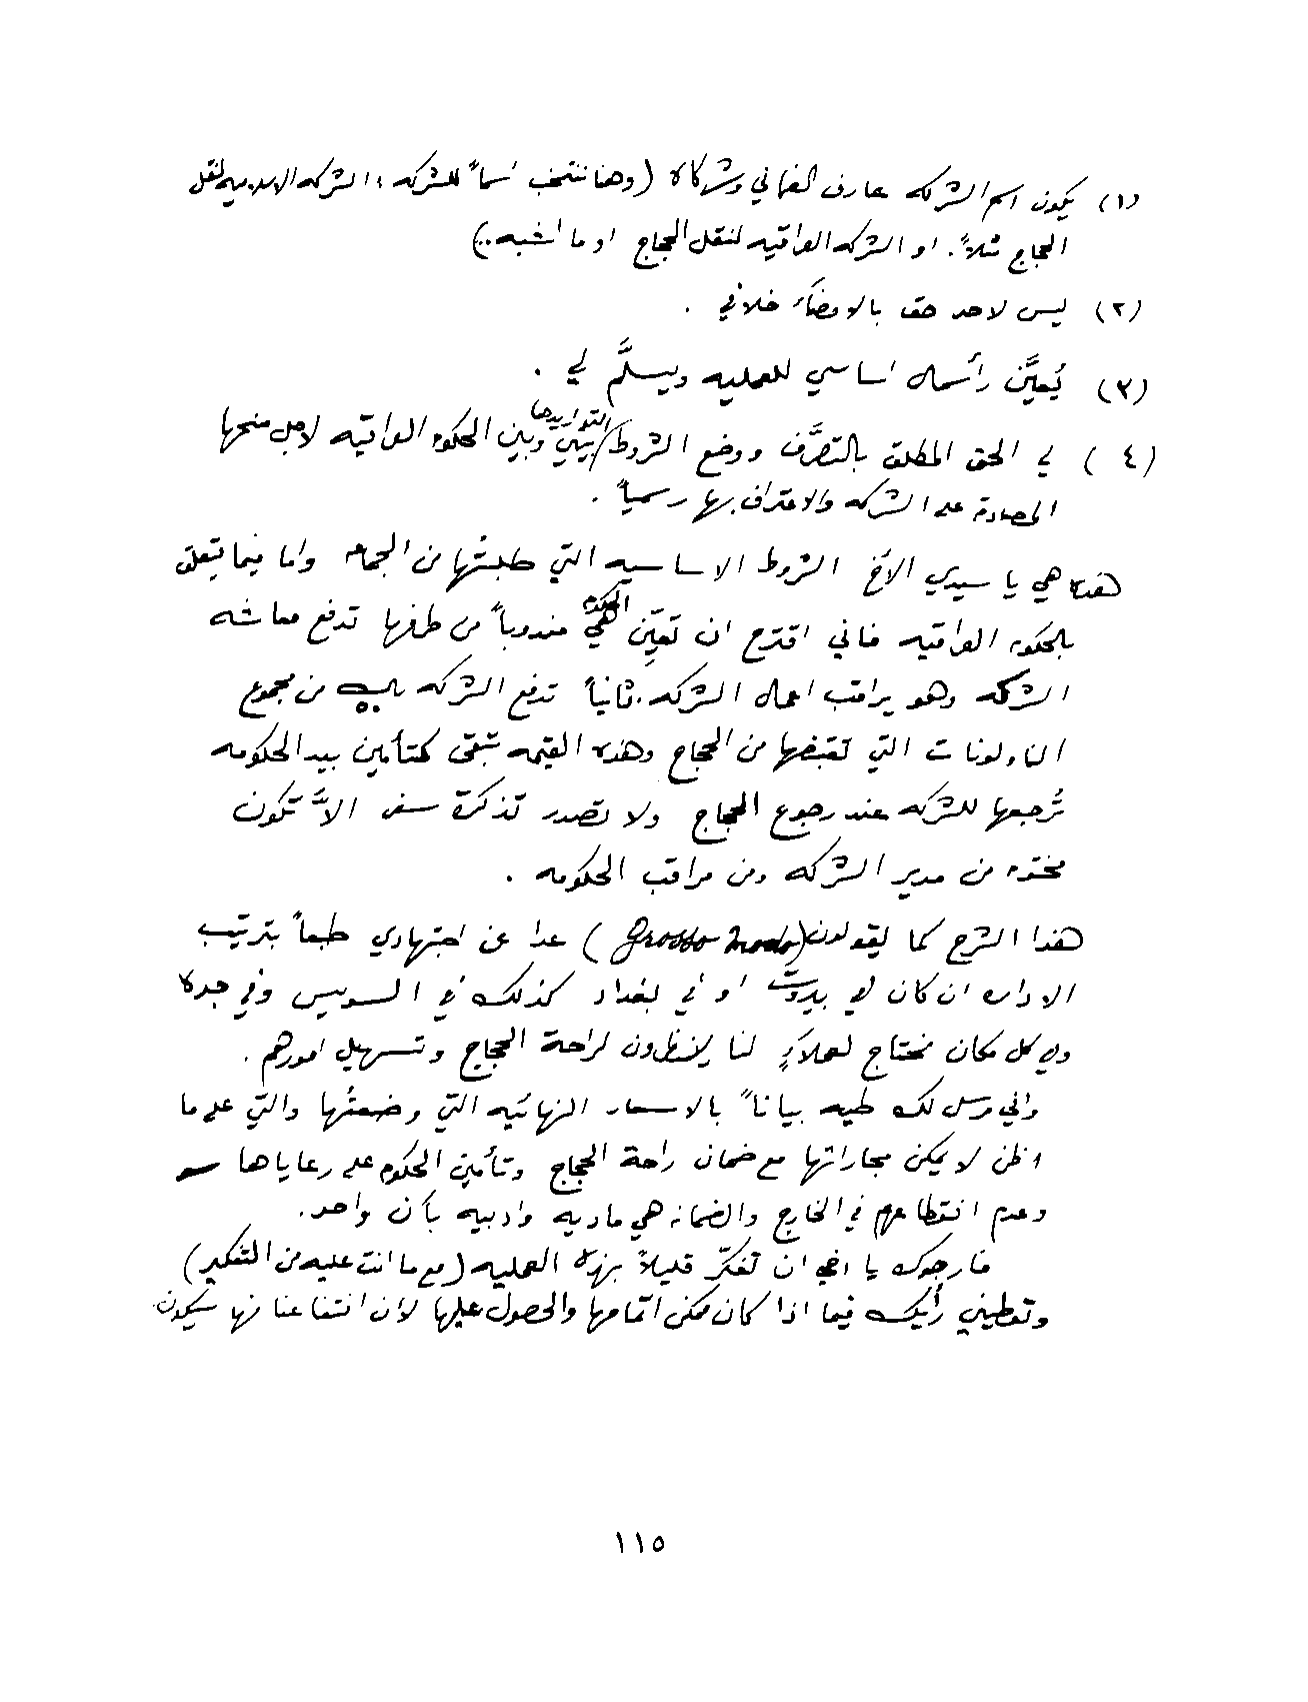 (١) يكون اسم الشركه عارف النعماني وشركاه (وهنا ننتخب اسماً للشركه: الشركه الاسلاميه لنقل
الحجاج مثلاً. او الشركه العراقيه لنقل الحجاج او ما اشبه..)
(٢) ليس لاحد حق بالامضاء خلافي .
(٣) يُعيَّن رأسمال اساسي للعمليه ويسلَّم لي .
(٤) لي الحق المطلق بالتصرَّف ووضع الشروط / التي اريدها بيني وبين الحكومه العراقيه لاجل منحها
المصادقة على الشركه والاعتراف بها رسمياً .
هذه هي يا سيدي الأخ الشروط الاساسيه التي طلبتُها من الجماعه واما فيما يتعلق
بالحكومه العراقيه فاني اقترح ان تعيِّن هي الحكومه مندوباً من طرفها تدفع معاشه
الشركه وهو يراقب اعمال الشركه. ثانياً تدفع الشركه من مجموع
الناولونات التي تقبضها من الحجاج وهذه القيمه تبقى كتأمين بيد الحكومه
تُرجعها للشركه عند رجوع الحجاج ولا تصدر تذكرة سفر الاَّ تكون
مختومه من مدير الشركه ومن مراقب الحكومه .
هذا الشرح كما يقولون (Grosso modo) عدا عن اجتهادي طبعاً بترتيب
الاداره ان كان في بيروت او في بغداد كذلك في السويس وفي جده
وفي كل مكان نحتاج لعملاءٍ لنا ينظرون لراحة الحجاج وتسهيل امورهم .
واني مرسل لك طيه بياناً بالاسعار النهائيه التي وضعتُها والتي على ما
اظن لا يمكن مجاراتها مع ضمان راحة الحجاج وتأمين الحكومه على رعاياها
وعدم انقطاعهم في الخارج والضمانه هي ماديه وادبيه بآن واحد.
فارجوك يا اخي ان تفكّر قليلاً بهذه العمليه (مع ما انت عليه من التفكير)
وتعطيني رأيك فيما اذا كان ممكن اتمامها والحصول عليها لأن انتفاعنا منها سيكون
١١٥